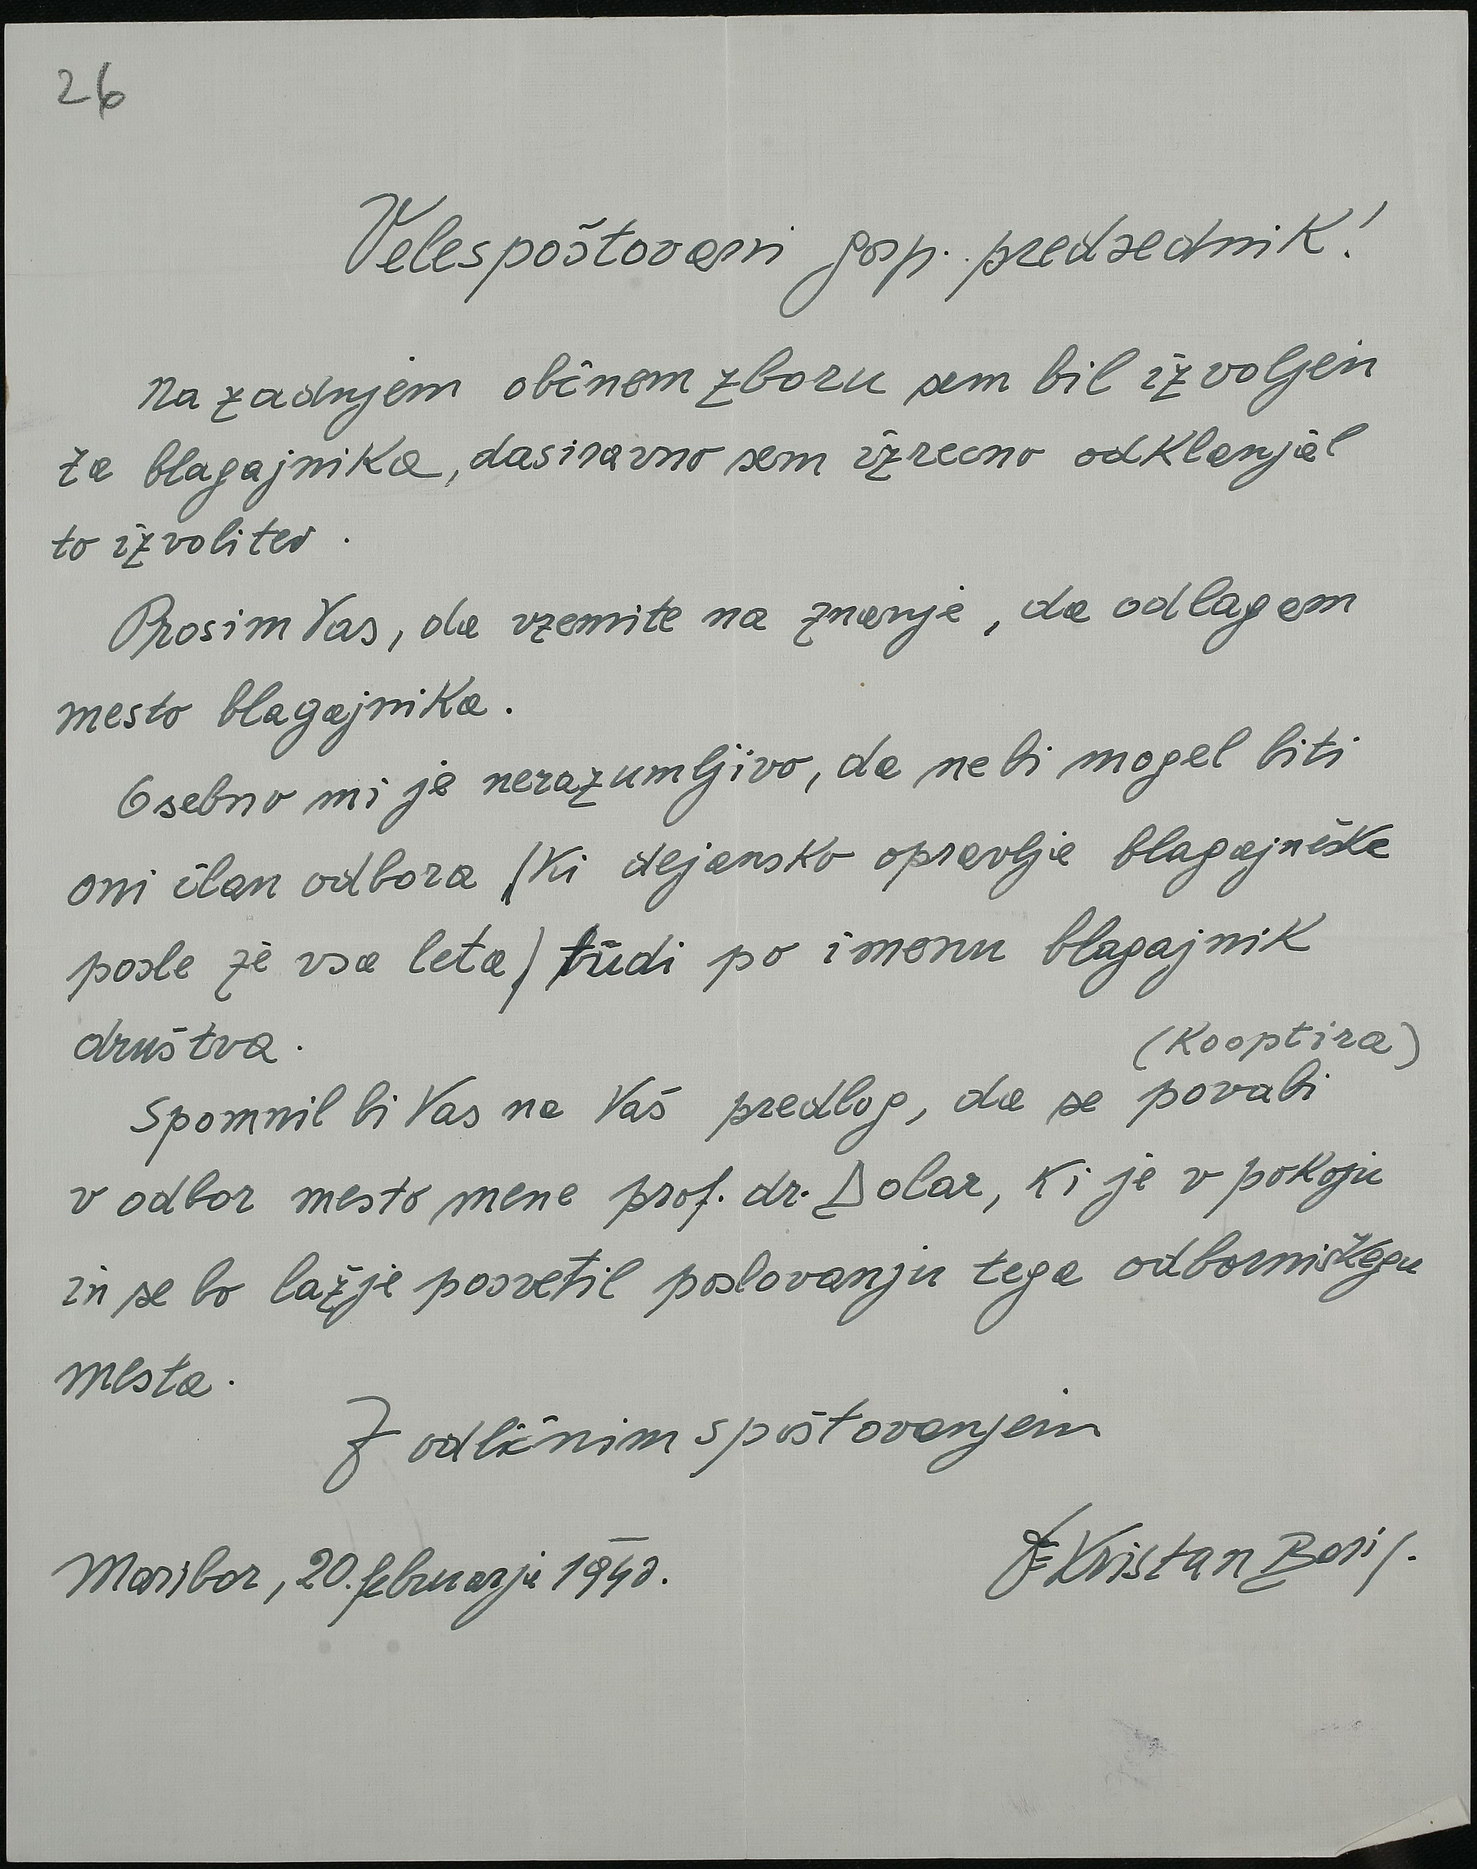 26
Velespoštovani gosp. predsednik!
Na zadnjem občnem zboru sem bil izvoljen
za blagajnika, dasiravno sem izrecno odklanjal
to izvolitev.
Prosim Vas, da vzemite na znanje, da odlagam
mesto blagajnika.
Osebno mi je nerazumljivo, da ne bi mogel biti
oni član odbora (ki dejansko opravlja blagajniške
posle že vsa leta) tudi po imenu blagajnik
društva.
(kooptira)
Spomnil bi Vas na Vaš predlog, da se povabi
v odbor mesto mene prof. dr. Dolar, ki je v pokoju
in se bo lažje posvetil poslovanju tega odborniškega
mesta.
Z odličnim spoštovanjem
Maribor, 20. februarja 1940.
Kristan Boris.